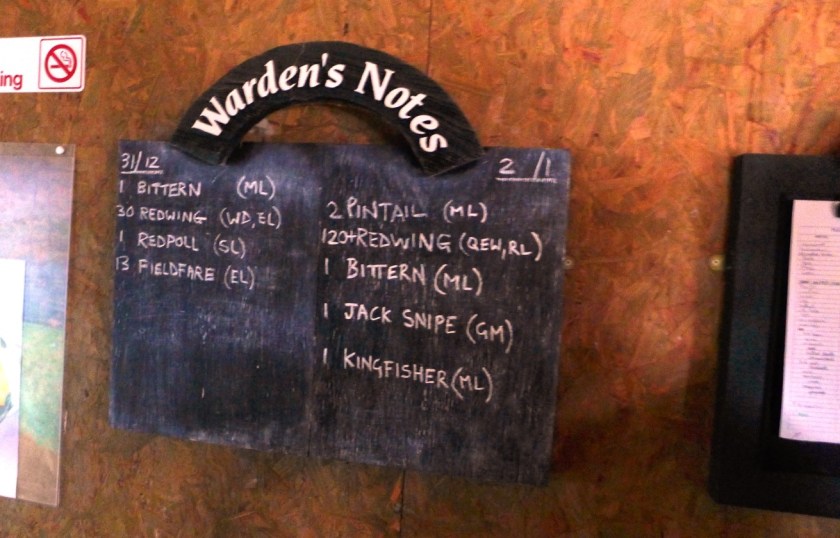 ing
Warden's Notes
31/12
1 BITTERN (ML)
30 REDWING (WD,EL)
1 REDPOLL (SL)
13 FIELDFARE (EL)
2/1
2 PINTAIL (ML)
120+REDWING (QEW,RL)
1 BITTERN (ML)
1 JACK SNIPE (GM)
1 KINGFISHER (ML)